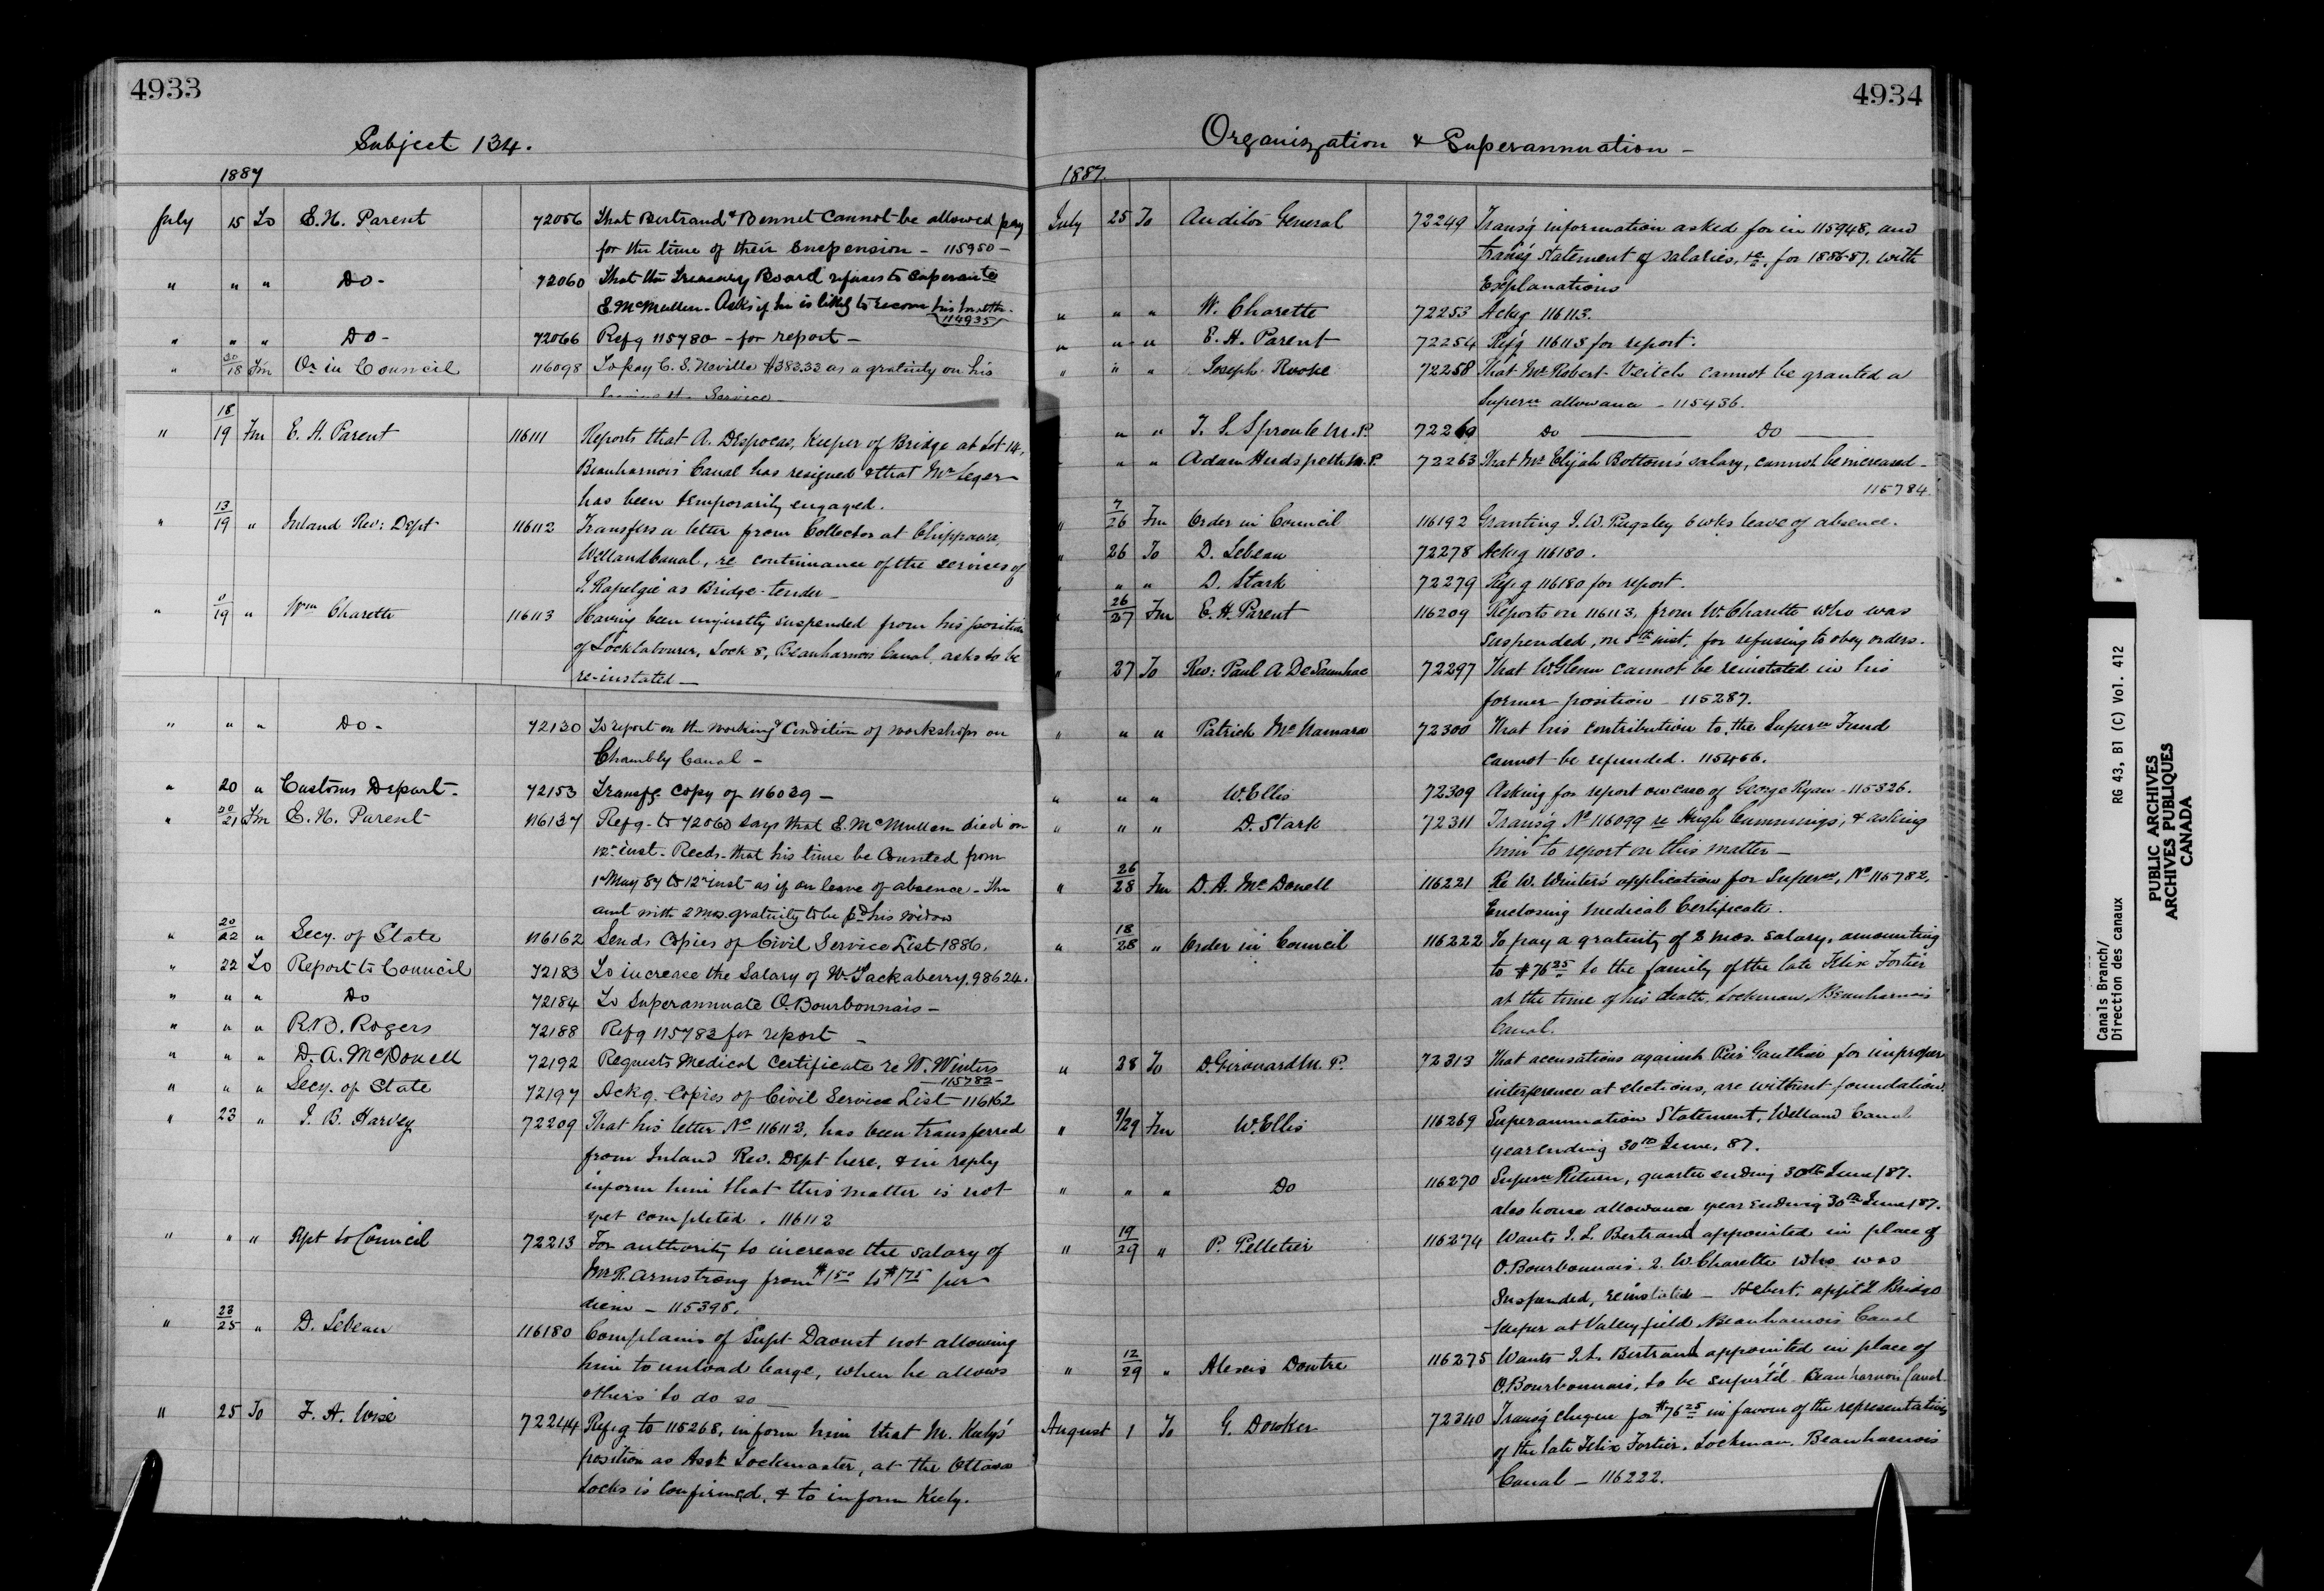 4933
Subject 134.
1887
July 15 To E. H. Parent 72056 That Bertrand & Bennet cannot be allowed pay
for the time of their suspension - 115950 -
" " " Do - 72060 That the Treasury Board refuses to
E. McMullen - Asks if he is likely to his
114935
" " " Do - 72066 Refg 115780 - for report -
" 20/18 Fm Or in Council 116098 To pay C. S. Neville $383.33 as a gratuity on his
Service
" 18/19 Fm E. H. Parent 116111 Reports that A. Keeper of Bridge at Lot 14,
Beauharnois Canal has resigned & that Mr Leger
has been temporarily engaged.
" 13/19 " Inland Rev: Dept 116112 Transfers a letter from Collector at Chippawa,
Welland Canal, re continuance of the services of
J. Rapelgie as Bridge-tender -
" /19 " Wm Charette 116113 Having been unjustly suspended from his position
of Locklabourer, Lock 8, Beauharnois Canal, asks to be
re-instated -
" " " Do - 72130 To report on the working & Condition of workshops on
Chambly Canal -
" 20 " Customs Depart - 72153 Transfg copy of 116039 -
" 20/21 Fm E. H. Parent 116137 Refg to 72060 says that E. McMullen died on
12th inst. Recds. that his time be Counted from
1st May 87 to 12th inst as if on leave of absence - The
amt with 2 mos. gratuity to be pd his widow
" 20/22 " Secy. of State 116162 Sends Copies of Civil Service List 1886.
" 22 To Report to Council 72183 To increase the Salary of Wm Tackaberry. 98624.
" " " Do 72184 To Superannuate O. Bourbonnais -
" " " R. B. Rogers 72188 Refg 115783 for report -
" " " D. A. McDonell 72192 Requests Medical Certificate re W. Winters
115782 -
" " " Secy. of State 72197 Ackg. Copies of Civil Service List - 116162
" 23 " J. B. Harvey 72209 That his letter No 116112, has been transferred
from Inland Rev. Dept here, & in reply
inform him that this matter is not
yet completed. 116112
" " " Rpt to Council 72213 For authority to increase the salary of
Mr R. Armstrong from $1.50 to $1.75 per
diem - 115398.
" 23/25 " D. Lebeau 116180 Complains of Supt Daoust not allowing
him to unload barge, when he allows
others to do so -
" 25 To F. A. Wise 72244 Refg to 115268, inform him that M. Kiely's
position as Asst Lockmaster, at the Ottawa
Locks is confirmed, & to inform Kiely.
4934
Organization & Superannuation -
1887.
July 25 To Auditor General 72249 Transg information asked for in 115948, and
transg statement of salaries, &c, for 1886-87. with
Explanations
" " " W. Charette 72253 Ackg 116113.
" " " E. H. Parent 72254 Refg 116118 for report.
" " " Joseph 72258 That Mr Robert Veitch cannot be granted a
Superan allowance - 115436.
" " T. S. Sproule M.P. 72260 Do Do
" " Adam Hudspeth M.P. 72263 That Mr Elijah Bottom's salary, cannot be increased -
115784.
" 7/26 Fm Order in Council 116192 Granting J. W. Pugsley 6 wks leave of absence.
" 26 To D. Lebeau 72278 Ackg 116180.
" " " D. Stark 72279 Refg 116180 for report.
" 26/27 Fm E. H. Parent 116209 Reports on 116113, from W. Charette who was
suspended, on 5th inst, for refusing to obey orders.
" 27 To Rev: Paul A De Saunhac 72297 That W. Glenn cannot be reinstated in his
former position - 115287.
" " " Patrick McNamara 72300 That his contribution to the Superan Fund
cannot be refunded. 115466.
" " " W. Ellis 72309 Asking for report on case of George Ryan - 115326.
" " " D. Stark 72311 Transg No 116099 re Hugh Cummings, & asking
him to report on this matter -
" 26/28 Fm D. A. McDonell 116221 Re W. Winter's application for Superan, No 115782,
Enclosing Medical Certificate.
" 18/28 " Order in Council 116222 To pay a gratuity of 2 mos. salary, amounting
to $76.25 to the family of the late Felix Fortier
at the time of his death, Lockman, Beauharnois
Canal.
" 28 To D. Girouard M.P. 72313 That accusations against Gauthier for improper
interference at elections, are without foundation.
" 9/29 Fm W. Ellis 116269 Superannuation Statement, Welland Canal
year ending 30th June, 87.
" " " Do 116270 Superan Return, quarter ending 30th June/87.
also house allowance year ending 30th June/87.
" 19/29 " P. Pelletier 116274 Wants J. L. Bertrand appointed in place of
O. Bourbonnais. 2. W. Charette who was
suspended, reinstated - Hebert. Bridge
-keeper at Valleyfield Beauharnois Canal
" 12/29 " Alexis Doutre 116275 Wants J. L. Bertrand appointed in place of
O. Bourbonnais, to be Beauharnois Canal -
August 1 To G. Dowker 72340 Transg cheque for $76.25 in favour of the representatives
of the late Felix Fortier. Lockman. Beauharnois
Canal - 116222.
Canals Branch/ RG 43, B1 (C) Vol. 412
Direction des canaux
PUBLIC ARCHIVES
ARCHIVES PUBLIQUES
CANADA